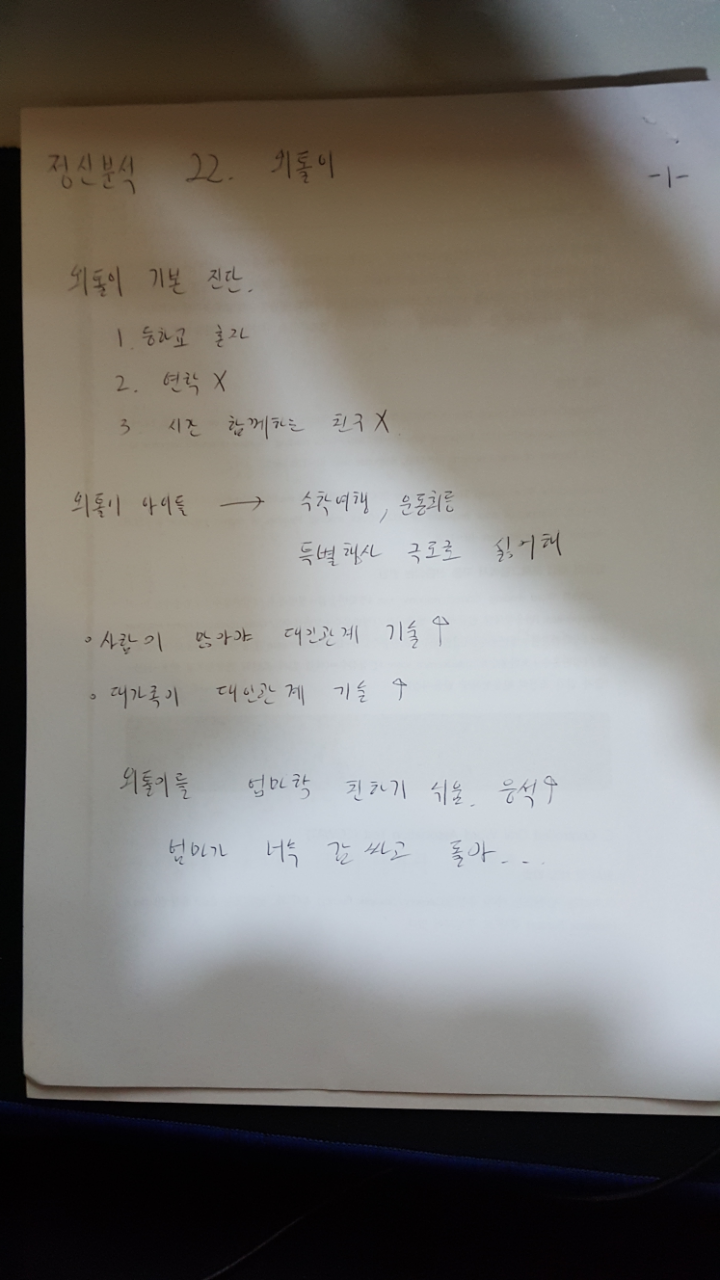 정신분석 22. 외톨이
-1-
외톨이 기본 진단.
1. 등하교 혼자
2. 연락 X
3 시간 함께하는 친구 X
외톨이 아이들 → 수학여행, 운동회등
특별행사 극도로 싫어해
∘ 사람이 많아야 대인관계 기술↑
∘ 대가족이 대인관계 기술↑
외톨이들 엄마학 친하기 쉬움. 응석↑
엄마가 너무 감싸고 돌아...